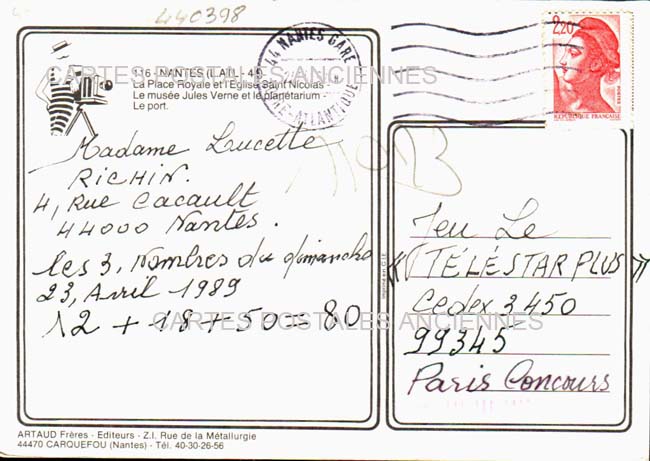 440398
116 - NANTES (L.-Atl. - 44)
La Place Royale et l'Eglise Saint Nicolas
Le musée Jules Verne et le planétarium -
Le port.
44 NANTES GARE
LOIRE-ATLANTIQUE
2,20
POSTES
REPUBLIQUE FRANÇAISE
CARTES POSTALES ANCIENNES
Madame Lucette
RICHIN.
4, Rue Cacault
44000 Nantes.
les 3, Nombres du dimanche
23, Avril 1989
12 + 18 + 50 = 80
CARTES POSTALES ANCIENNES
Jeu Le
« TÉLÉSTAR PLUS »
Cedex 3450
99345
Paris Concours
ARTAUD Frères - Editeurs - Z.I. Rue de la Métallurgie
44470 CARQUEFOU (Nantes) - Tél. 40-30-26-56